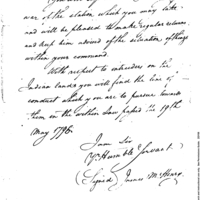 war of the station, which you may take
and will be pleased to make regular returns
and keep him advised of the situation of things
within your command.
With respect to intruders on the
Indian lands you will find the line of
conduct which you are to pursue towards
them on the within Law passed the 19th
May 1796.
I am Sir
Yr Humble Servant.
(Signed) James McHenry.